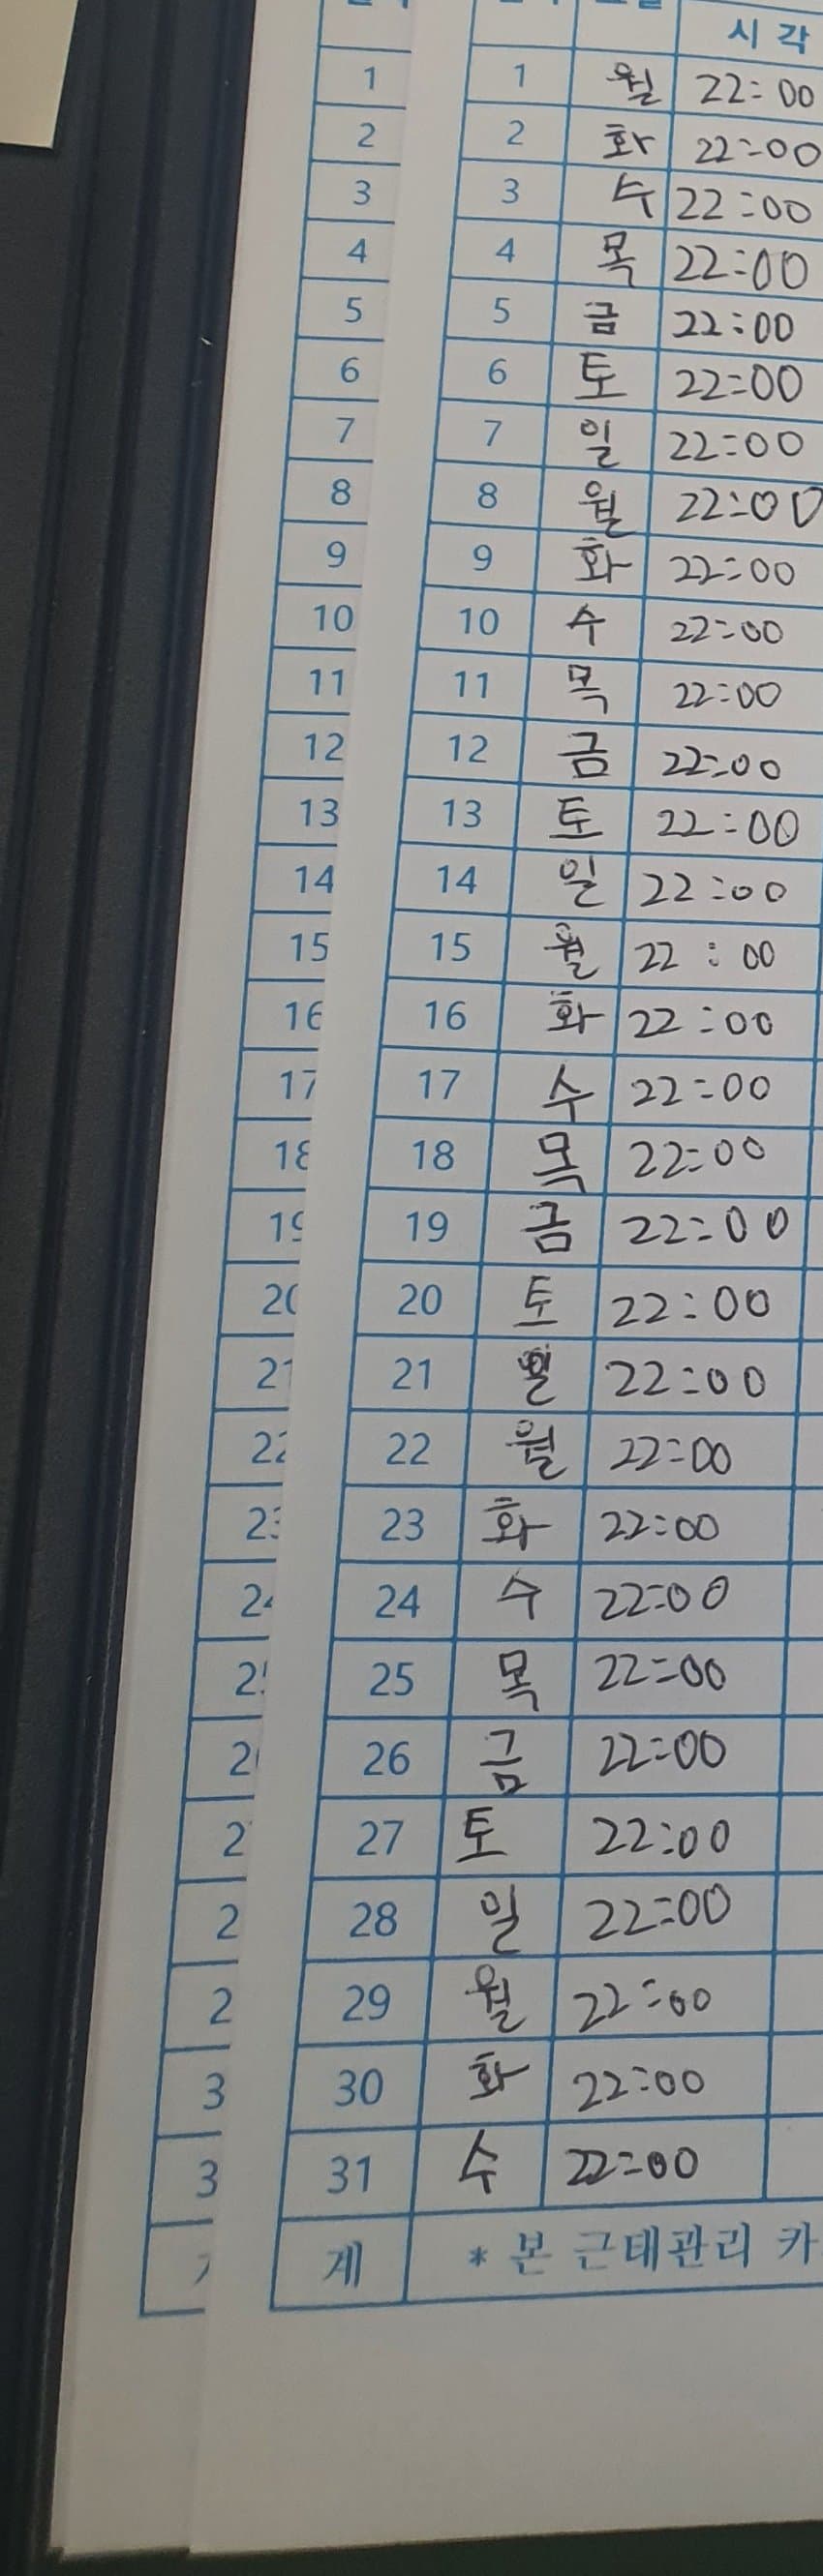 시 각
1 1 월 22:00
2 2 화 22:00
3 3 수 22:00
4 4 목 22:00
5 5 금 22:00
6 6 토 22:00
7 7 일 22:00
8 8 월 22:00
9 9 화 22:00
10 10 수 22:00
11 11 목 22:00
12 12 금 22:00
13 13 토 22:00
14 14 일 22:00
15 15 월 22:00
16 16 화 22:00
17 17 수 22:00
18 18 목 22:00
19 19 금 22:00
20 20 토 22:00
21 21 22:00
22 22 월 22:00
23 23 화 22:00
24 24 수 22:00
2 25 목 22:00
2 26 금 22:00
2 27 토 22:00
2 28 일 22:00
2 29 월 22:00
3 30 화 22:00
3 31 수 22:00
계 * 본 근태관리 카